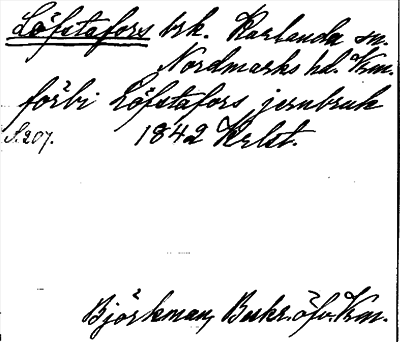 Löfstafors brk. Karlanda sn.
Nordmarks hd. Vrm.
förbi Löfstafors jernbruk
S. 207. 1842 Krlst.
Björkman, Beskr. öfv. Vrm.